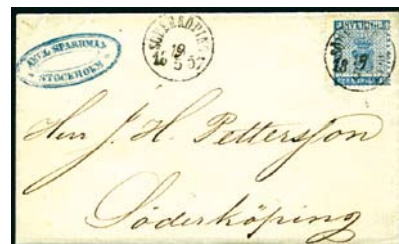 AXEL SPARRMAN
STOCKHOLM
SÖDERKÖPING
19
5
1857
SVERIGE
Herr J. H. Pettersson
Söderköping